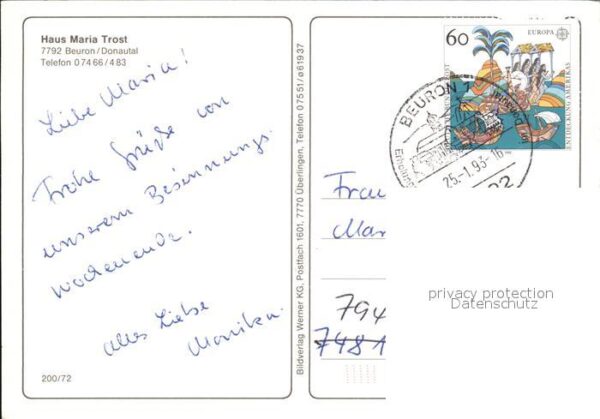 Haus Maria Trost
7792 Beuron/Donautal
Telefon 07466/483
Liebe Maria!
Frohe Grüße von
unserem Besinnungs-
wochenende.
Alles Liebe
Monika.
200/72
Bildverlag Werner KG, Postfach 1601, 7770 Überlingen, Telefon 07551/ø61937
60
EUROPA
ENTDECKUNG AMERIKAS
BEURON 1
25.-1.93-16
Frau
Mar
794
748
privacy protection
Datenschutz